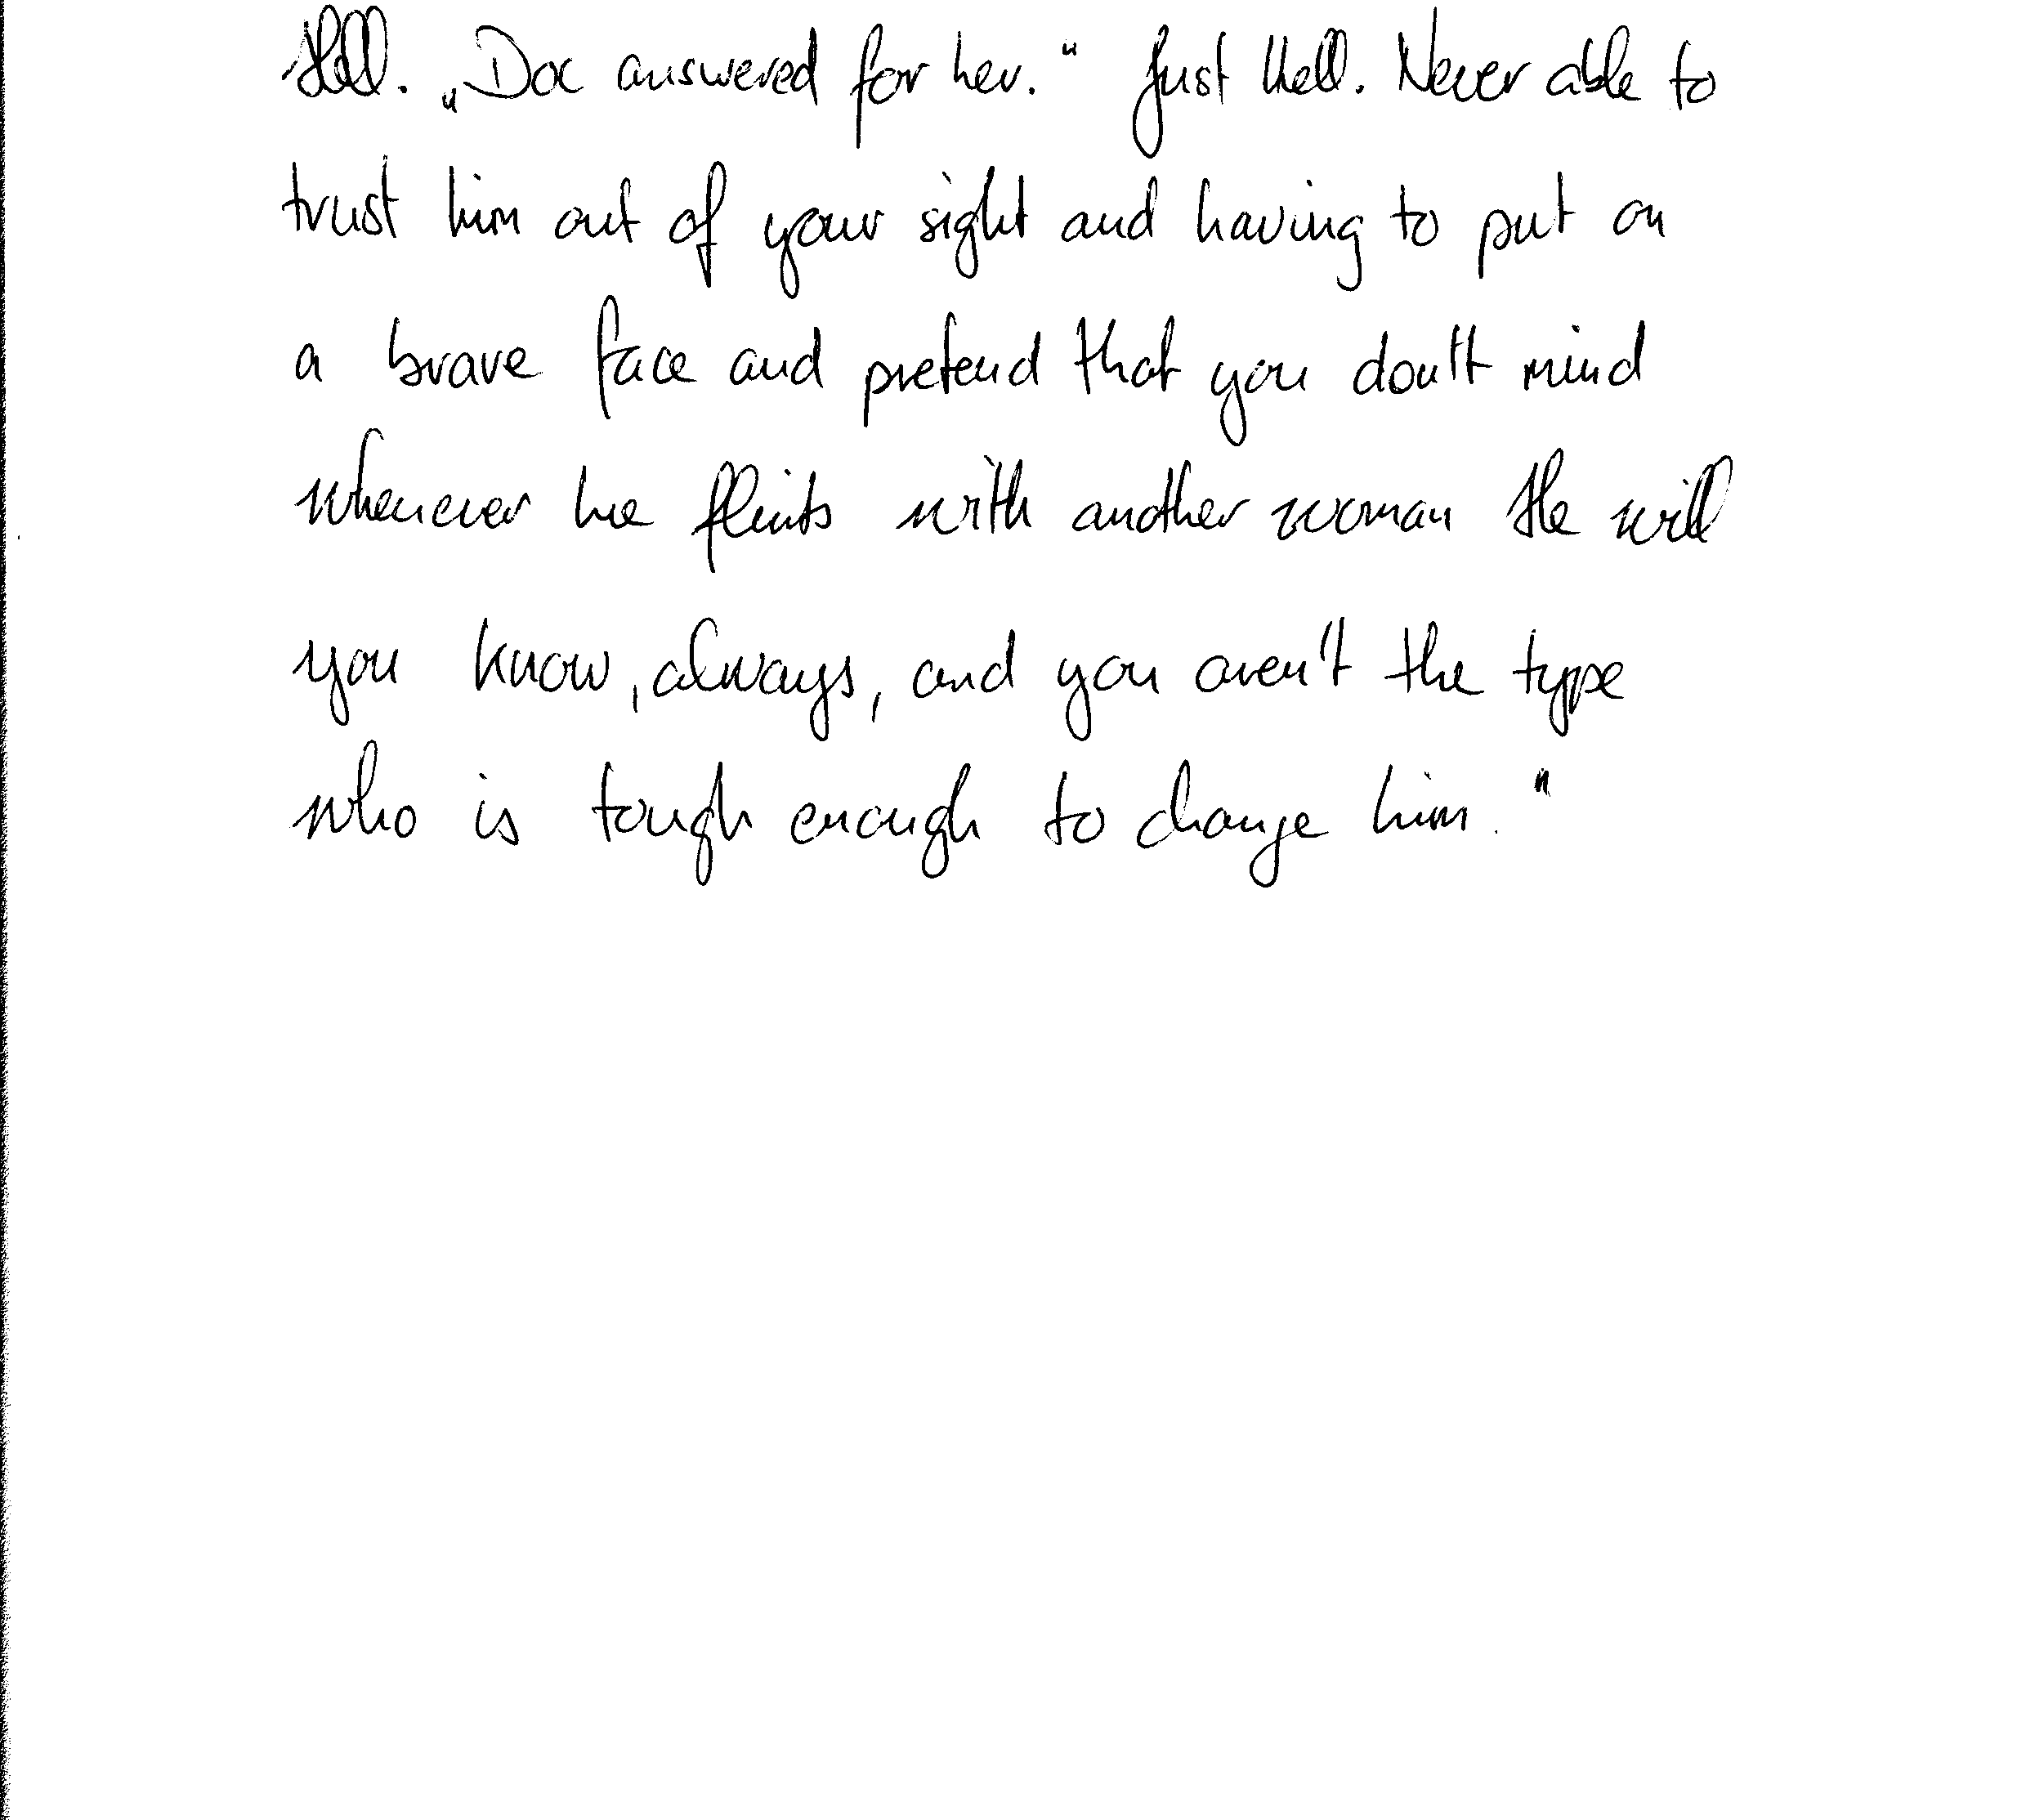 Hell. „Doc answered for her.“ Just Hell. Never able to
trust him out of your sight and having to put on
a brave face and pretend that you don't mind
whenever he flirts with another woman He will
you know, always, and you aren't the type
who is tough enough to change him."